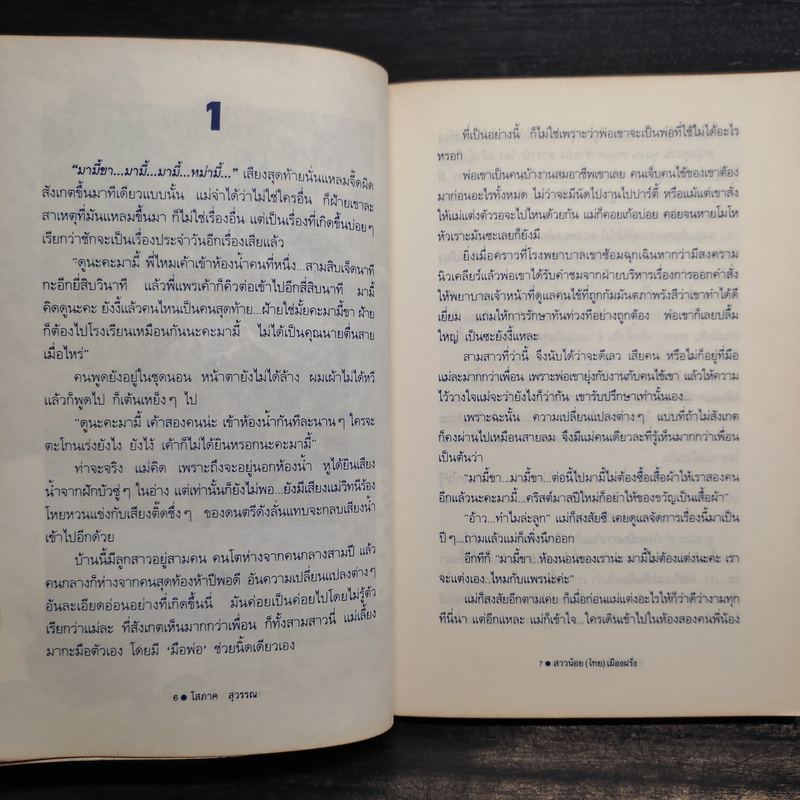 1
“มามี้ขา...มามี้...มามี้...หม่ามี้...” เสียงสุดท้ายนั่นแหลมจี๊ดผิด
สังเกตขึ้นมาทีเดียวแบบนั้น แม่จำได้ว่าไม่ใช่ใครอื่น ก็ฝ้ายเขาละ
สาเหตุที่มันแหลมขึ้นมา ก็ไม่ใช่เรื่องอื่น แต่เป็นเรื่องที่เกิดขึ้นบ่อยๆ
เรียกว่าชักจะเป็นเรื่องประจำวันอีกเรื่องเสียแล้ว
“ดูนะคะมามี้ พี่ไหมเค้าเข้าห้องน้ำคนที่หนึ่ง...สามสิบเจ็ดนาที
กะอีกยี่สิบวินาที แล้วพี่แพรเค้าก็คิวต่อเข้าไปอีกสี่สิบนาที มามี้
คิดดูนะคะ ยังงี้แล้วคนไหนเป็นคนสุดท้าย...ฝ้ายใช่มั้ยคะมามี้ขา ฝ้าย
ก็ต้องไปโรงเรียนเหมือนกันนะคะมามี้ ไม่ได้เป็นคุณนายตื่นสาย
เมื่อไหร่”
คนพูดยังอยู่ในชุดนอน หน้าตายังไม่ได้ล้าง ผมเผ้าไม่ได้หวี
แล้วก็พูดไป ก็เต้นเหยิงๆ ไป
“ดูนะคะมามี้ เค้าสองคนน่ะ เข้าห้องน้ำกันทีละนานๆ ใครจะ
ตะโกนเร่งยังไง ยังไง้ เค้าก็ไม่ได้ยินหรอกนะคะมามี้”
ท่าจะจริง แม่คิด เพราะถึงจะอยู่นอกห้องน้ำ หูได้ยินเสียง
น้ำจากฝักบัวซู่ๆ ในอ่าง แต่เท่านั้นก็ยังไม่พอ...ยังมีเสียงแม่วิทนีร้อง
โหยหวนแข่งกับเสียงตื๊ดซึ่งๆ ของดนตรีดังลั่นแทบจะกลบเสียงน้ำ
เข้าไปอีกด้วย
บ้านนี้มีลูกสาวอยู่สามคน คนโตห่างจากคนกลางสามปี แล้ว
คนกลางก็ห่างจากคนสุดท้องห้าปีพอดี อันความเปลี่ยนแปลงต่างๆ
อันละเอียดอ่อนอย่างที่เกิดขึ้นนี่ มันค่อยเป็นค่อยไปโดยไม่รู้ตัว
เรียกว่าแม่ละ ที่สังเกตเห็นมากกว่าเพื่อน ก็ทั้งสามสาวนี่ แม่เลี้ยง
มากะมือตัวเอง โดยมี ‘มือพ่อ’ ช่วยนิ้ดเดียวเอง
6 ● โสภาค สุวรรณ
ที่เป็นอย่างนี้ ก็ไม่ใช่เพราะว่าพ่อเขาจะเป็นพ่อที่ใช้ไม่ได้อะไร
หรอก
พ่อเขาเป็นคนบ้างานสมอาชีพเขาเลย คนเจ็บคนไข้ของเขาต้อง
มาก่อนอะไรทั้งหมด ไม่ว่าจะมีนัดไปงานไปปาร์ตี้ หรือแม้แต่เขาสั่ง
ให้แม่แต่งตัวรอจะไปไหนด้วยกัน แม่ก็คอยเก้อบ่อย คอยจนหายโมโห
หัวเราะมันซะเลยก็ยังมี
ยิ่งเมื่อคราวที่โรงพยาบาลเขาซ้อมฉุกเฉินหากว่ามีสงคราม
นิวเคลียร์แล้วพ่อเขาได้รับคำชมจากฝ่ายบริหารเรื่องการออกคำสั่ง
ให้พยาบาลเจ้าหน้าที่ดูแลคนไข้ที่ถูกกัมมันตภาพรังสีว่าเขาทำได้ดี
เยี่ยม แถมให้การรักษาทันท่วงทีอย่างถูกต้อง พ่อเขาก็เลยปลื้ม
ใหญ่ เป็นซะยังงี้แหละ
สามสาวที่ว่านี้ จึงนับได้ว่าจะดีเลว เสียคน หรือไม่ก็อยู่ที่มือ
แม่ละมากกว่าเพื่อน เพราะพ่อเขายุ่งกับงานกับคนไข้เขา แล้วให้ความ
ไว้วางใจแม่จะว่ายังไงก็ว่ากัน เขารับปรึกษาเท่านั้นเอง...
เพราะฉะนั้น ความเปลี่ยนแปลงต่างๆ แบบที่ถ้าไม่สังเกต
ก็คงผ่านไปเหมือนสายลม จึงมีแม่คนเดียวละที่รู้เห็นมากกว่าเพื่อน
เป็นต้นว่า
“มามี้ขา...มามี้ขา...ต่อนี้ไปมามี้ไม่ต้องซื้อเสื้อผ้าให้เราสองคน
อีกแล้วนะคะมามี้...คริสต์มาสปีใหม่ก็อย่าให้ของขวัญเป็นเสื้อผ้า”
“อ้าว...ทำไมล่ะลูก” แม่ก็สงสัยซี เคยดูแลจัดการเรื่องนี้มาเป็น
ปีๆ...ถามแล้วแม่ก็เพิ่งนึกออก
อีกทีก็ “มามี้ขา..ห้องนอนของเราน่ะ มามี้ไม่ต้องแต่งนะคะ เรา
จะแต่งเอง..ไหมกับแพรน่ะค่ะ”
แม่ก็สงสัยอีกตามเคย ก็เมื่อก่อนแม่แต่งอะไรให้ก็ว่าดีว่างามทุก
ทีนี่นา แต่อีกแหละ แม่ก็เข้าใจ...ใครเดินเข้าไปในห้องสองคนพี่น้อง
7 ● สาวน้อย (ไทย) เมืองฝรั่ง